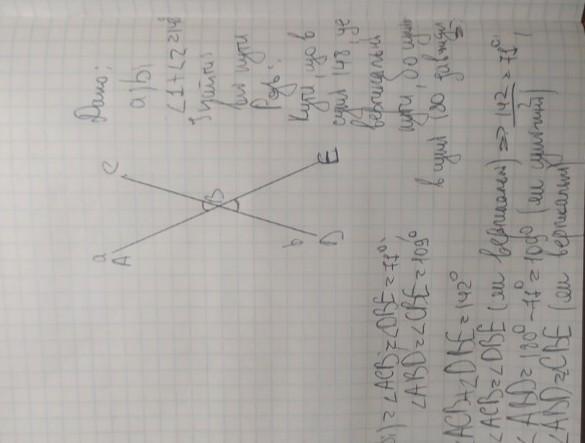 Дано:
a, b,
∠1+∠2=148
Знайти:
всі кути
Розв.:
Кути, що в
сумі 148° це
вертикальні
кути, бо
в сумі 180
C
B
E
a
A
b
D
∠ACB=∠DBE=71°,
∠ABD=∠CBE=109°
ACB+∠DBE=142°
ACB=∠DBE (як вертикальні) ⇒ 142/2=71°.
∠ABD=180°-71°=109° (як суміжний)
∠ABD=∠CBE (як вертикальні)